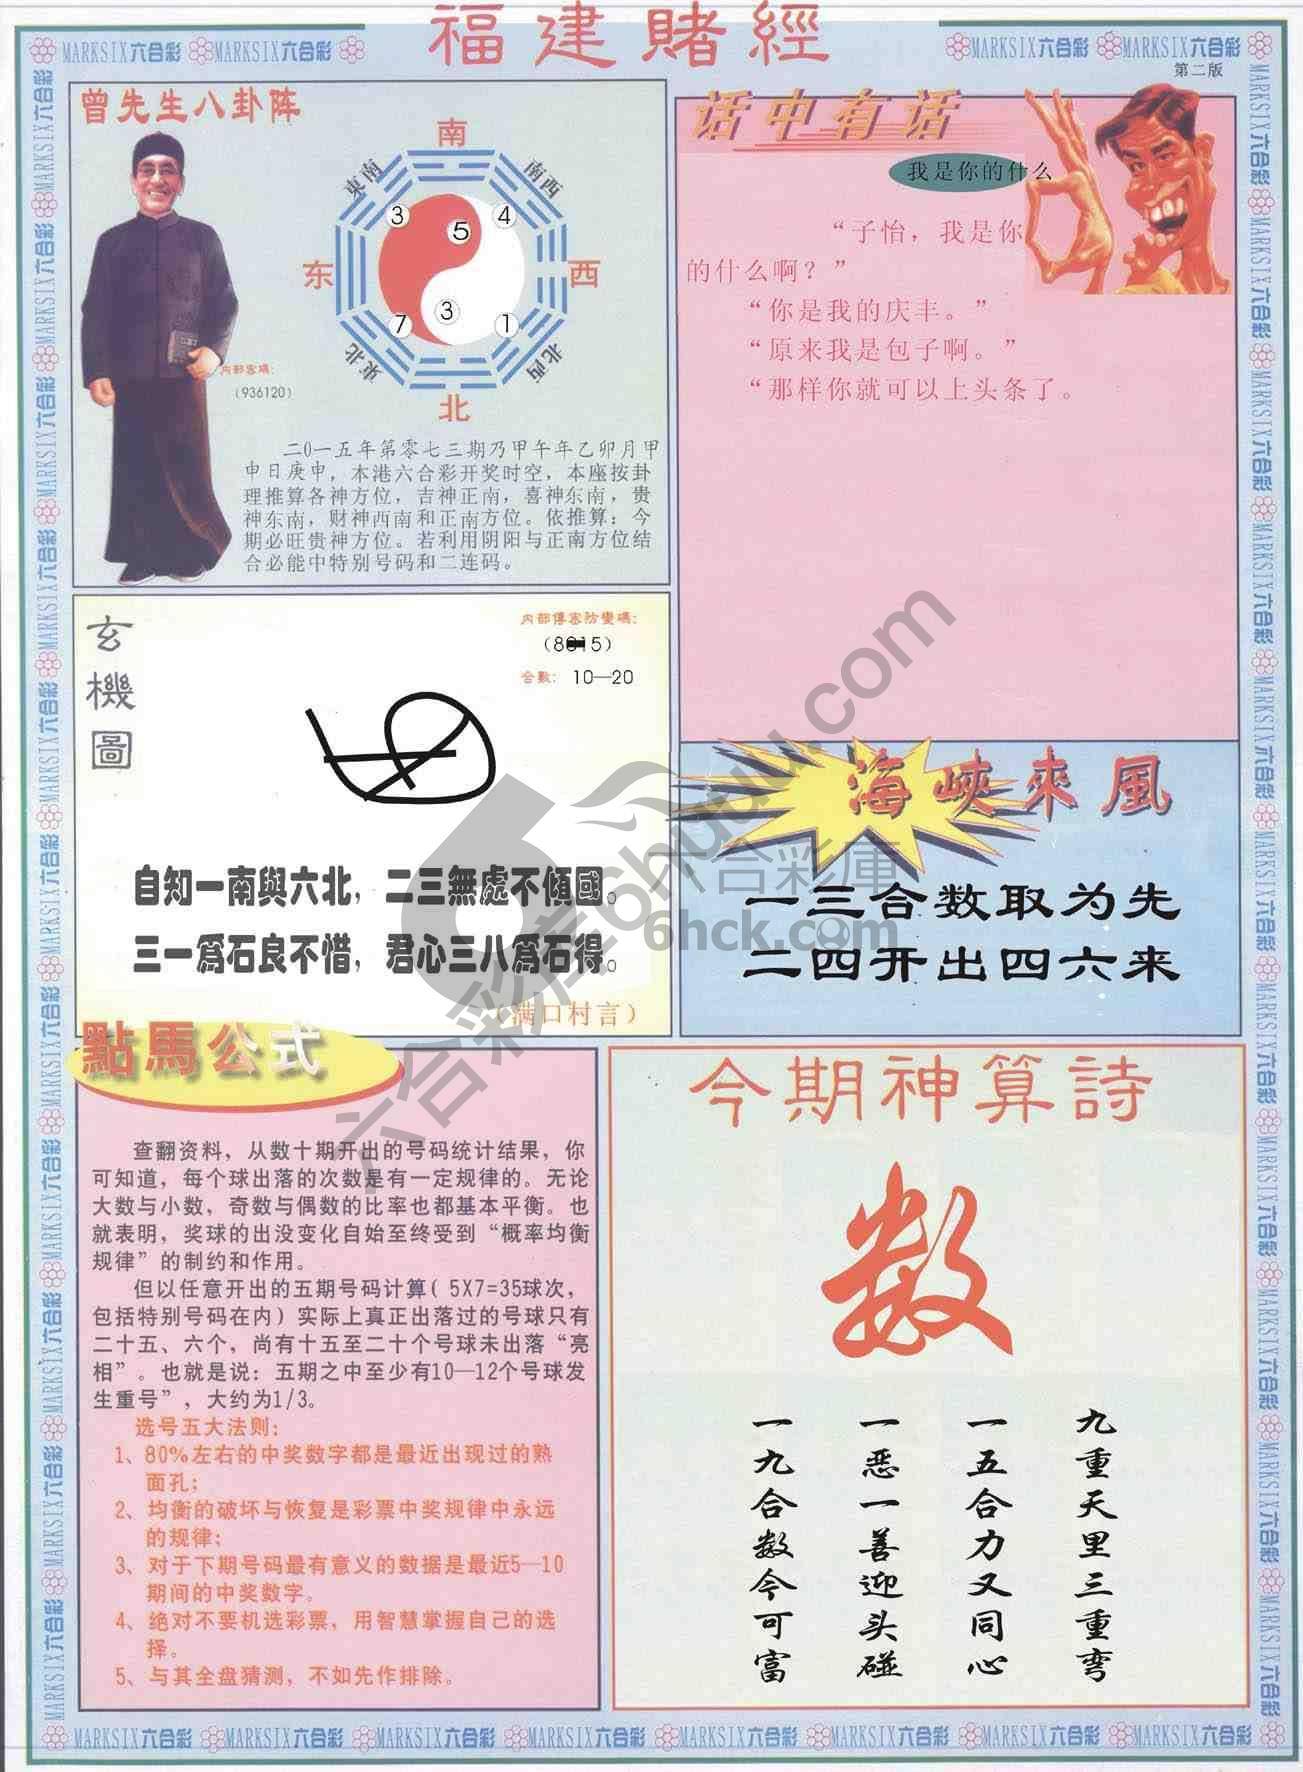 福建賭經
MARKSIX六合彩 MARKSIX六合彩
MARKSIX六合彩 MARKSIX六合彩
第二版
曾先生八卦阵
南
東南
南西
3
5
4
东
西
7
3
1
東北
北西
北
内部密碼:
(936120)
二0一五年第零七三期乃甲午年乙卯月甲
申日庚申，本港六合彩开奖时空，本座按卦
理推算各神方位，吉神正南，喜神东南，贵
神东南，财神西南和正南方位。依推算：今
期必旺贵神方位。若利用阴阳与正南方位结
合必能中特别号码和二连码。
话中有话
我是你的什么
“子怡，我是你
的什么啊？”
“你是我的庆丰。”
“原来我是包子啊。”
“那样你就可以上头条了。
玄機圖
合數: 10—20
自知一南與六北，二三無處不傾國。
三一爲石良不惜，君心三八爲石得。
（满口村言）
海峽來風
一三合数取为先
二四开出四六来
點馬公式
查翻资料，从数十期开出的号码统计结果，你
可知道，每个球出落的次数是有一定规律的。无论
大数与小数，奇数与偶数的比率也都基本平衡。也
就表明，奖球的出没变化自始至终受到“概率均衡
规律”的制约和作用。
但以任意开出的五期号码计算( 5X7=35球次，
包括特别号码在内）实际上真正出落过的号球只有
二十五、六个，尚有十五至二十个号球未出落“亮
相”。也就是说：五期之中至少有10—12个号球发
生重号”，大约为1/3。
选号五大法则:
1、80%左右的中奖数字都是最近出现过的熟
面孔;
2、均衡的破坏与恢复是彩票中奖规律中永远
的规律;
3、对于下期号码最有意义的数据是最近5—10
期间的中奖数字。
4、绝对不要机选彩票，用智慧掌握自己的选
择。
5、与其全盘猜测，不如先作排除。
今期神算詩
数
九重天里三重弯
一五合力又同心
一恶一善迎头碰
一九合数今可富
六合彩库6hhuu.com
六合彩庫
6hck.com
MARKSIX六合彩 MARKSIX六合彩 MARKSIX六合彩 MARKSIX六合彩 MARKSIX六合彩 MARKSIX六合彩 MARKSIX六合彩 MARKSIX六合彩